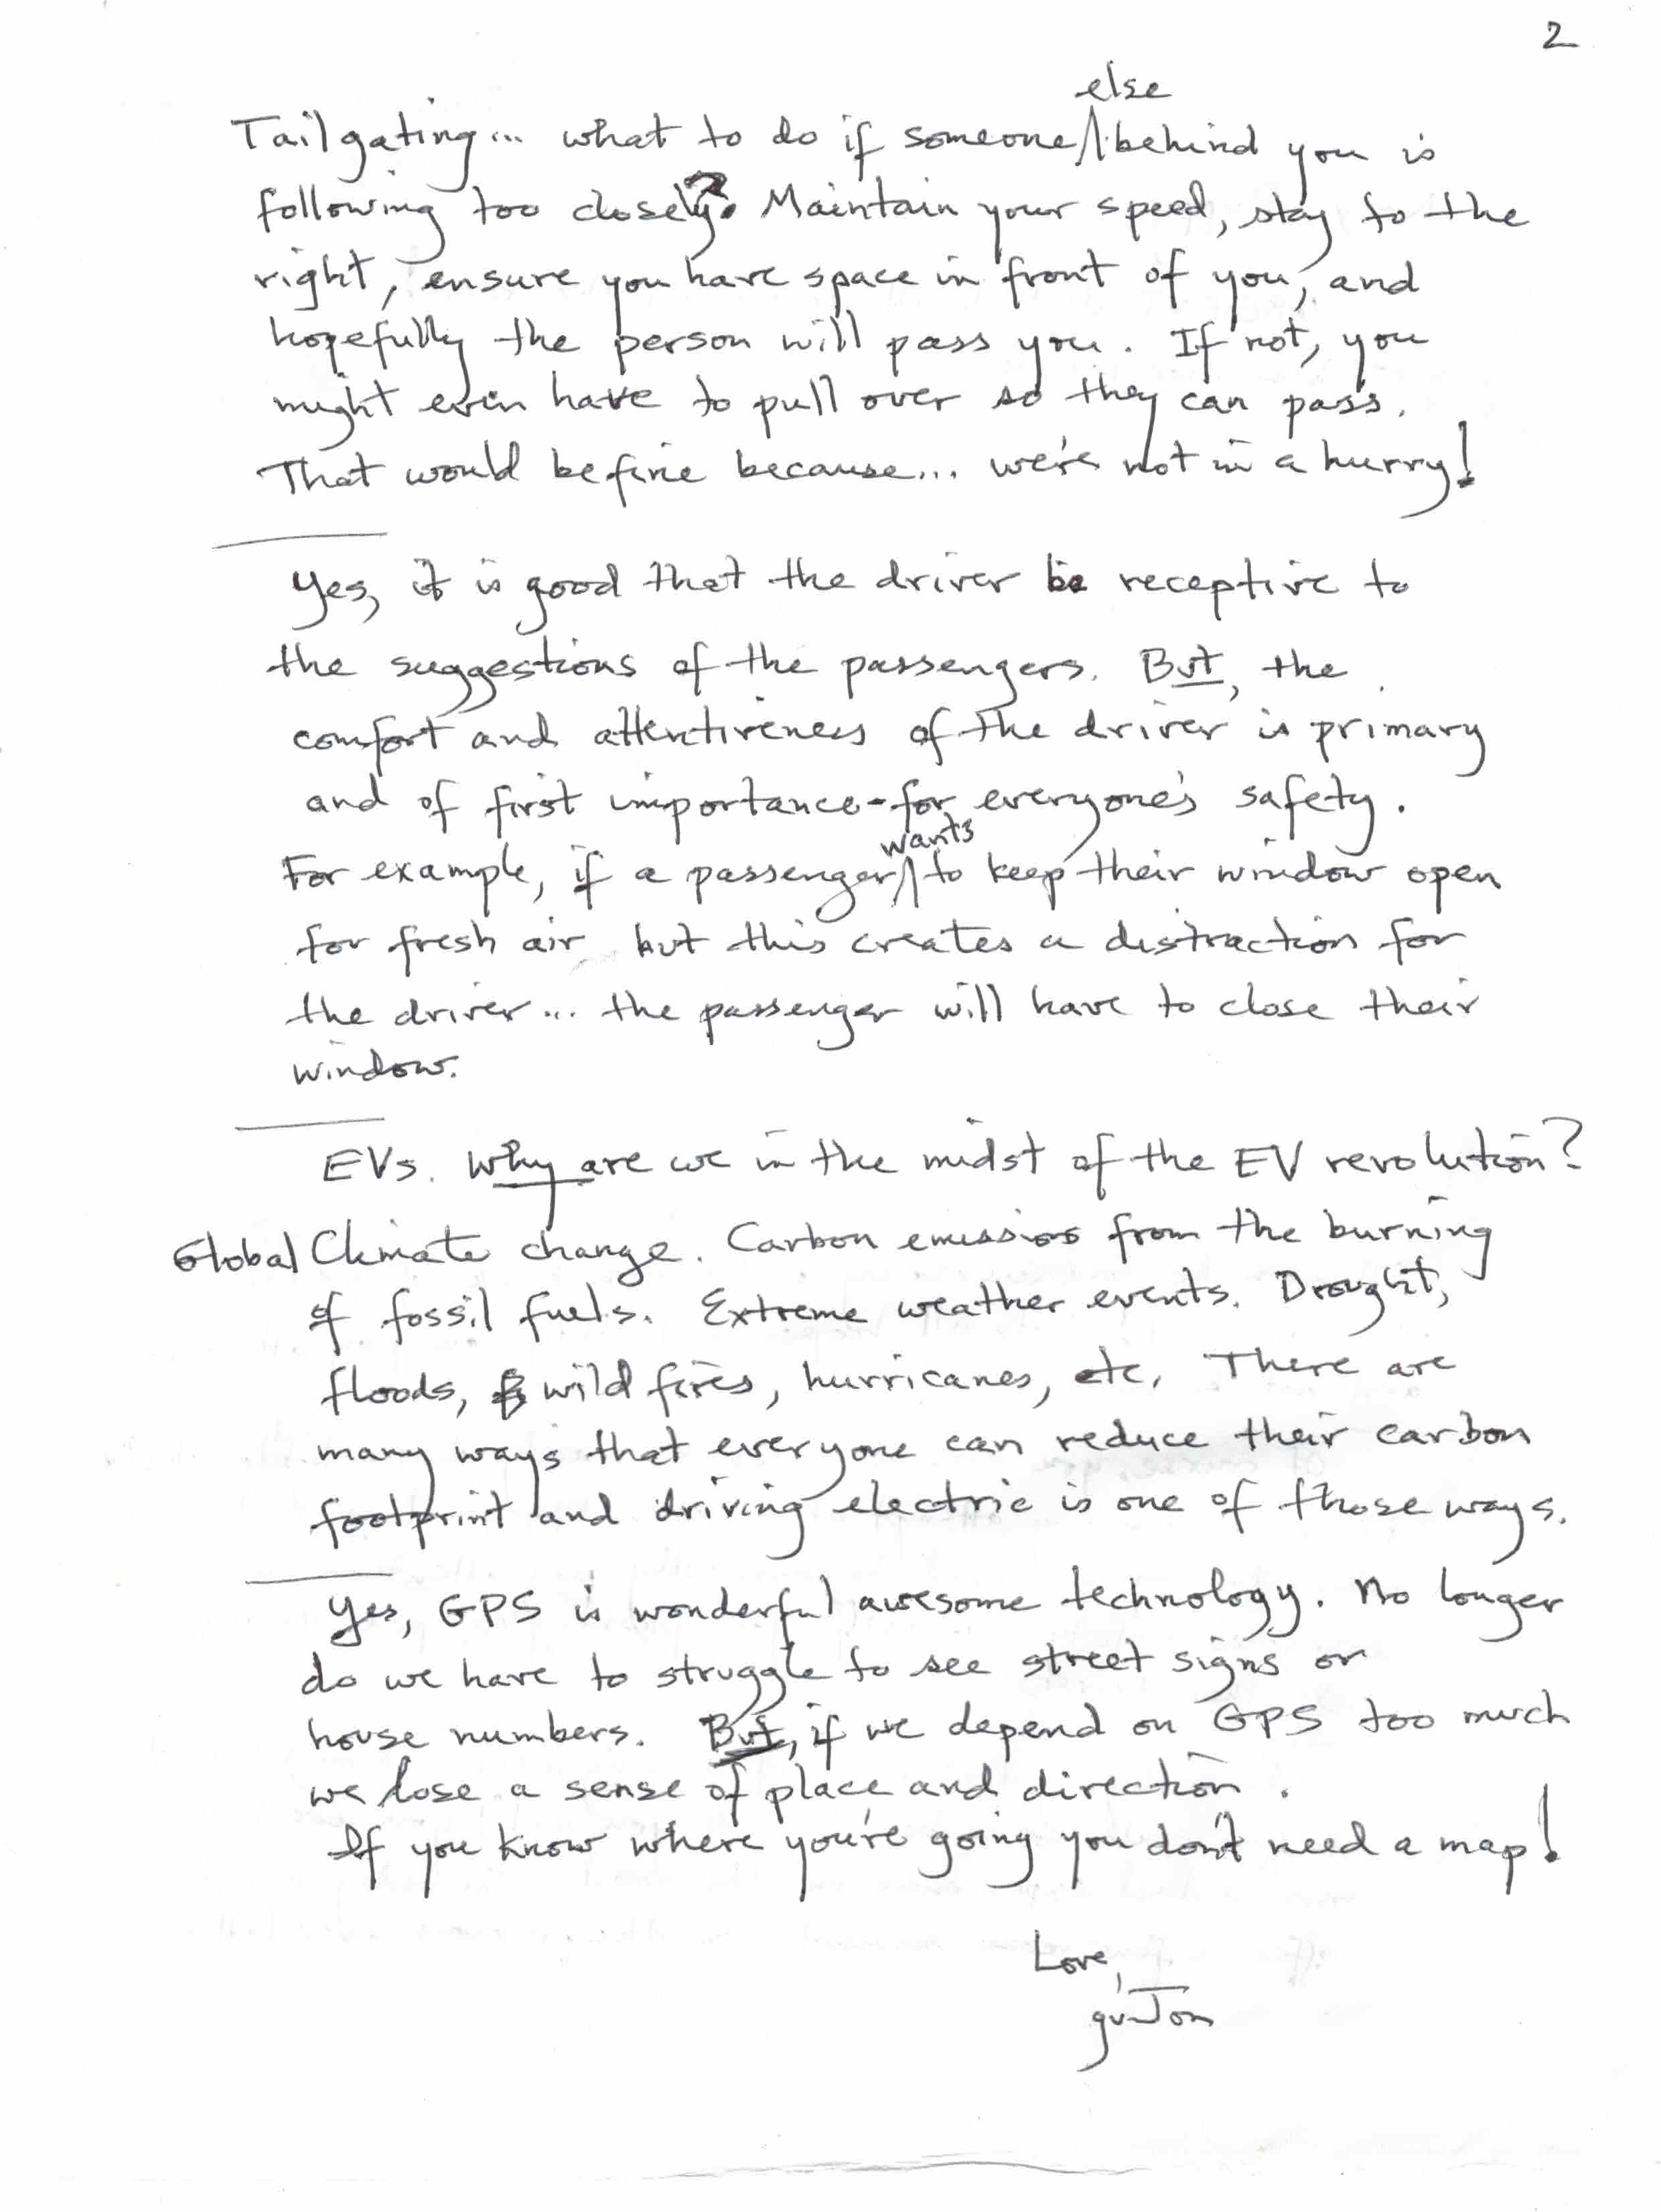 2
Tailgating... what to do if someone else behind you is
following too closely? Maintain your speed, stay to the
right, ensure you have space in front of you, and
hopefully the person will pass you. If not, you
might even have to pull over so they can pass.
That would be fine because... we're not in a hurry!
Yes, it is good that the driver be receptive to
the suggestions of the passengers. But, the
comfort and attentiveness of the driver is primary
and of first importance - for everyone's safety.
For example, if a passenger wants to keep their window open
for fresh air but this creates a distraction for
the driver... the passenger will have to close their
window.
EVs. Why are we in the midst of the EV revolution?
Global Climate change. Carbon emissions from the burning
of fossil fuels. Extreme weather events. Drought,
floods, wild fires, hurricanes, etc. There are
many ways that everyone can reduce their carbon
footprint and driving electric is one of those ways.
Yes, GPS is wonderful awesome technology. No longer
do we have to struggle to see street signs or
house numbers. But, if we depend on GPS too much
we lose a sense of place and direction.
If you know where you're going you don't need a map!
Love,